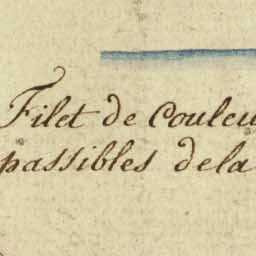 Filet de Couleu
passibles dela